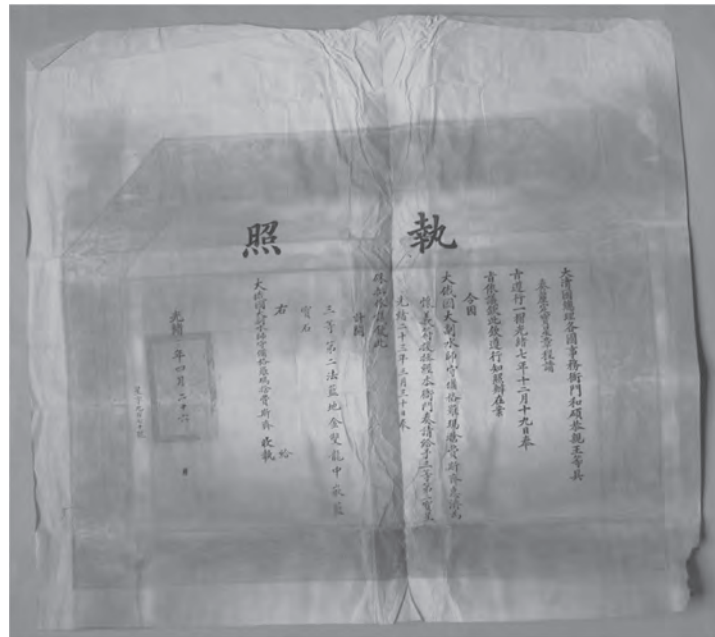 執照
大清國總理各國事務衙門和碩恭親王等具
奏釐定寶星章程請
旨遵行一摺光緒七年十二月十九日奉
旨依議欽此欽遵行知照辦在案
今因
大俄國大副水師守備格羅瑪費斯齊
本衙門奏請給予三等第二寶星
光緒二十三年三月三十日奉
硃批依議欽此
計開
三等第二法藍地金雙龍中嵌藍
寶石
右 給
大俄國大副水師守備格羅瑪費斯齊收執
光緒 年四月二十六 日